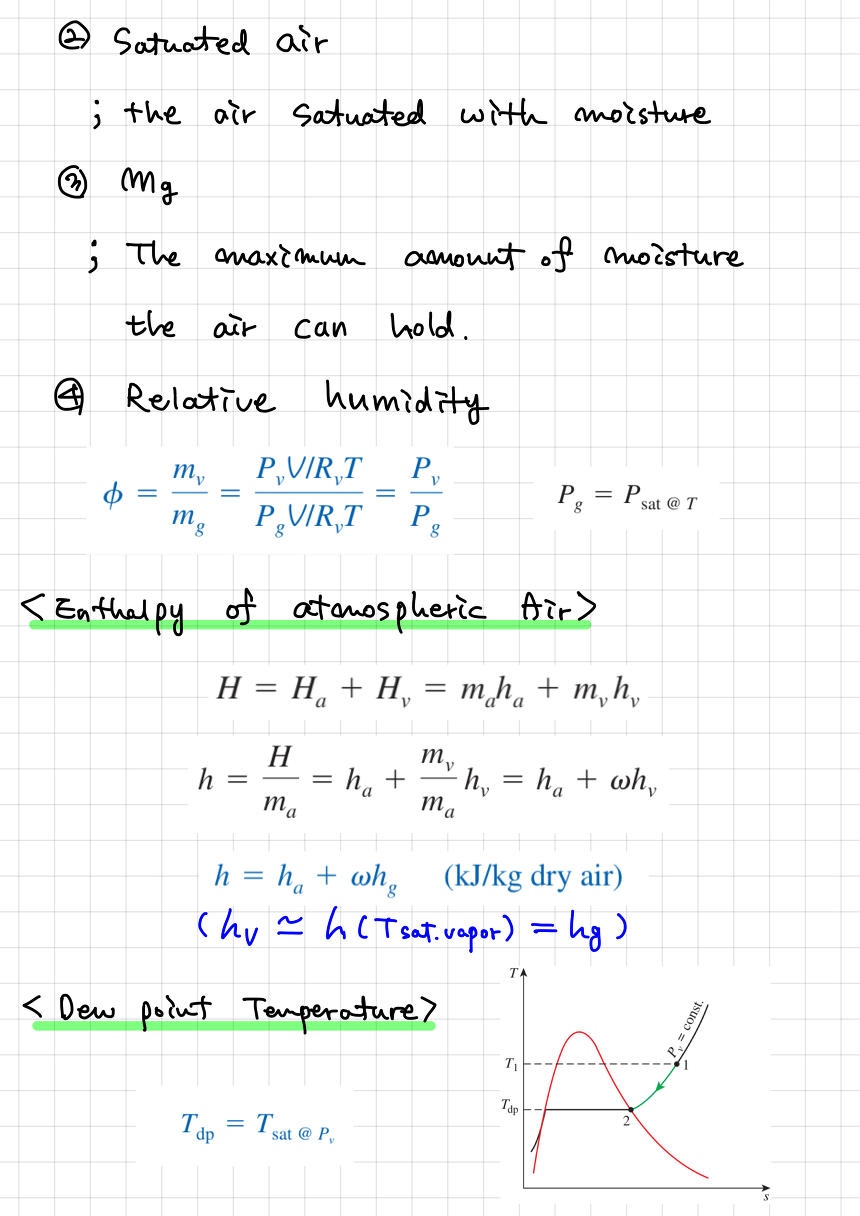 ② Satuated air
; the air satuated with moisture
③ mg
; The maximum amount of moisture
the air can hold.
④ Relative humidity
ϕ = m_v/m_g = (P_v V/R_v T)/(P_g V/R_v T) = P_v/P_g P_g = P_sat @ T
<Enthalpy of atmospheric Air>
H = H_a + H_v = m_a h_a + m_v h_v
h = H/m_a = h_a + (m_v/m_a) h_v = h_a + ωh_v
h = h_a + ωh_g (kJ/kg dry air)
(h_v ≃ h(T sat.vapor) = hg)
<Dew point Temperature>
T_dp = T_sat @ P_v
T
P_v = const.
T_1
1
T_dp
2
s